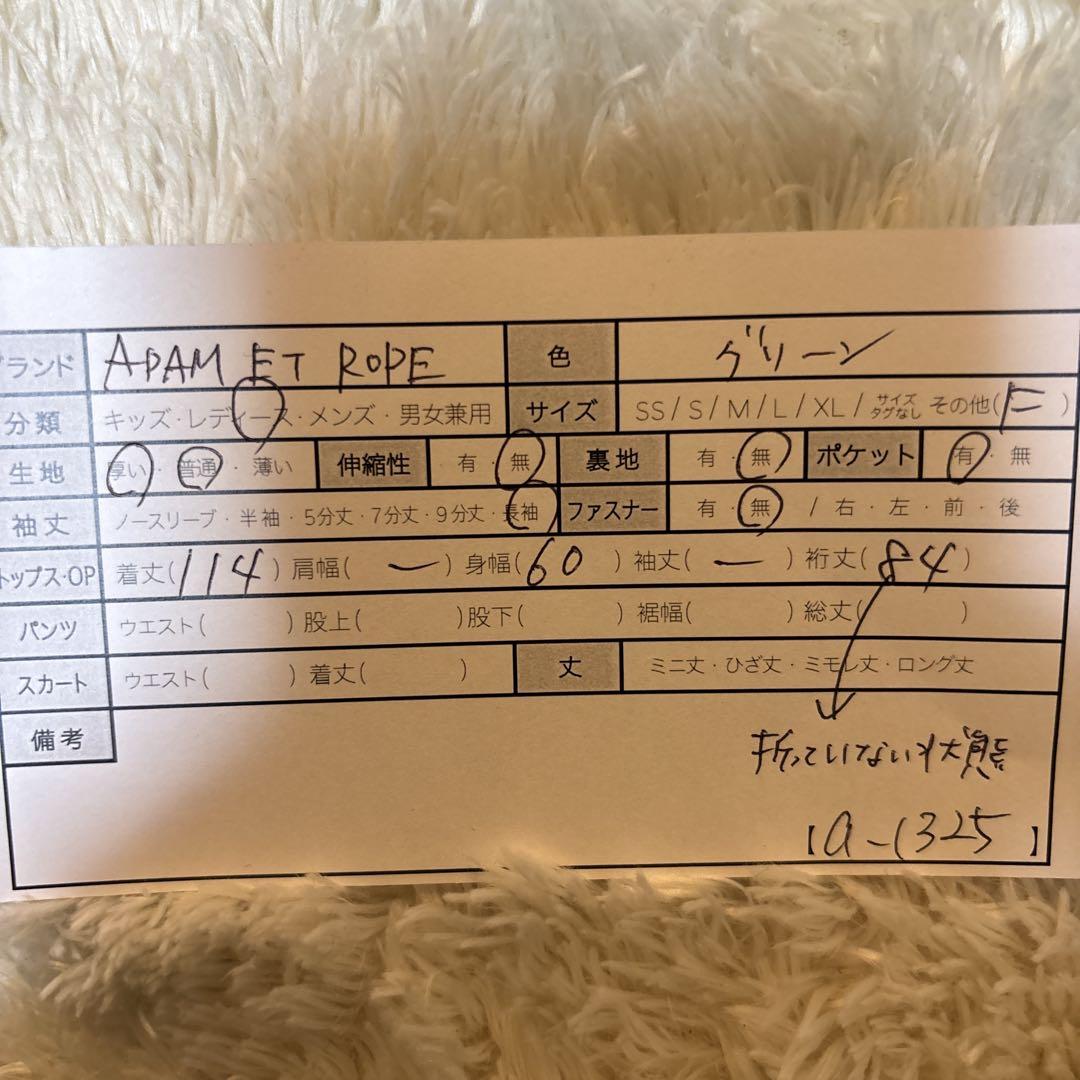 ブランド ADAM ET ROPE 色 グリーン
分類 キッズ・レディース・メンズ・男女兼用 サイズ SS / S / M / L / XL / サイズタグなし その他(F)
生地 厚い・普通・薄い 伸縮性 有・無 裏地 有・無 ポケット 有・無
袖丈 ノースリーブ・半袖・5分丈・7分丈・9分丈・長袖 ファスナー 有・無 / 右・左・前・後
トップス・OP 着丈(114) 肩幅( ー ) 身幅(60) 袖丈( ー ) 裄丈(84)
パンツ ウエスト( ) 股上( ) 股下( ) 裾幅( ) 総丈( )
スカート ウエスト( ) 着丈( ) 丈 ミニ丈・ひざ丈・ミモレ丈・ロング丈
備考
折っていない状態
【a-1325】